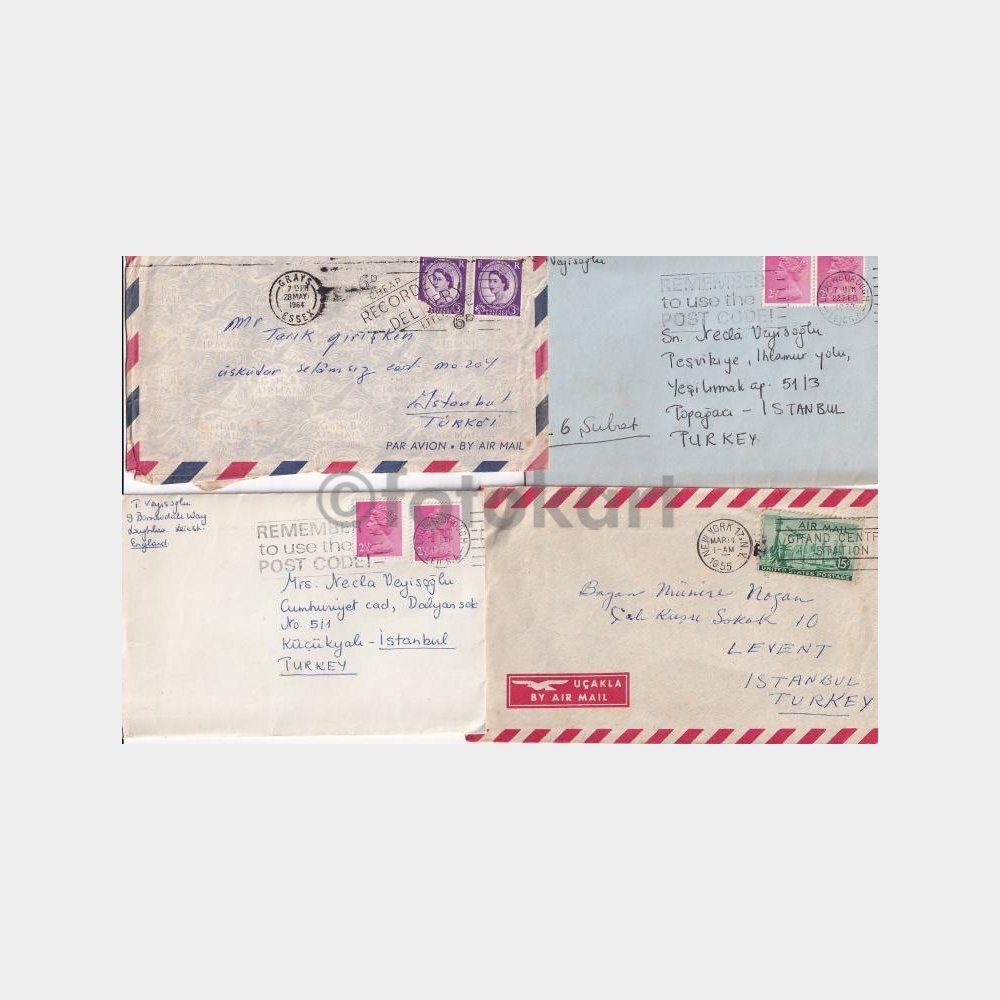 GRAYS
7 15 PM
28 MAY
1964
ESSEX
6D
CHEAP
RECORDED
DEL
6D
3D
3D
Mr
Tarık girişken
üsküdar selâmsız cad. no. 204
İstanbul
TÜRKEİ
PAR AVION • BY AIR MAIL
Veyisoğlu
REMEMBER
to use the
POST CODE!
LOUGHBOROUGH
22 FEB
Sn. Neclâ Veyisoğlu
Teşvikiye, Ihlamur yolu,
Yeşilırmak ap. 51/3
Topağacı - İSTANBUL
TURKEY
6 Şubat
©fotokart
T. Veyisoglu
9 Borrowdale Way
Loughboro. Leicest.
England
REMEMBER
to use the
POST CODE!
2½
2½
Mrs. Necla Veyisoğlu
Cumhuriyet cad, Dalyan sok
No. 5/1
Küçükyalı - İstanbul
TURKEY
NEW YORK 17, N.Y.
MAR 11
1-AM
1955
AIR MAIL
GRAND CENTR
STATION
15¢
UNITED STATES POSTAGE
Bayan Münire Noğan
Çalı Kuşu Sokak 10
LEVENT
ISTANBUL
TURKEY
UÇAKLA
BY AIR MAIL